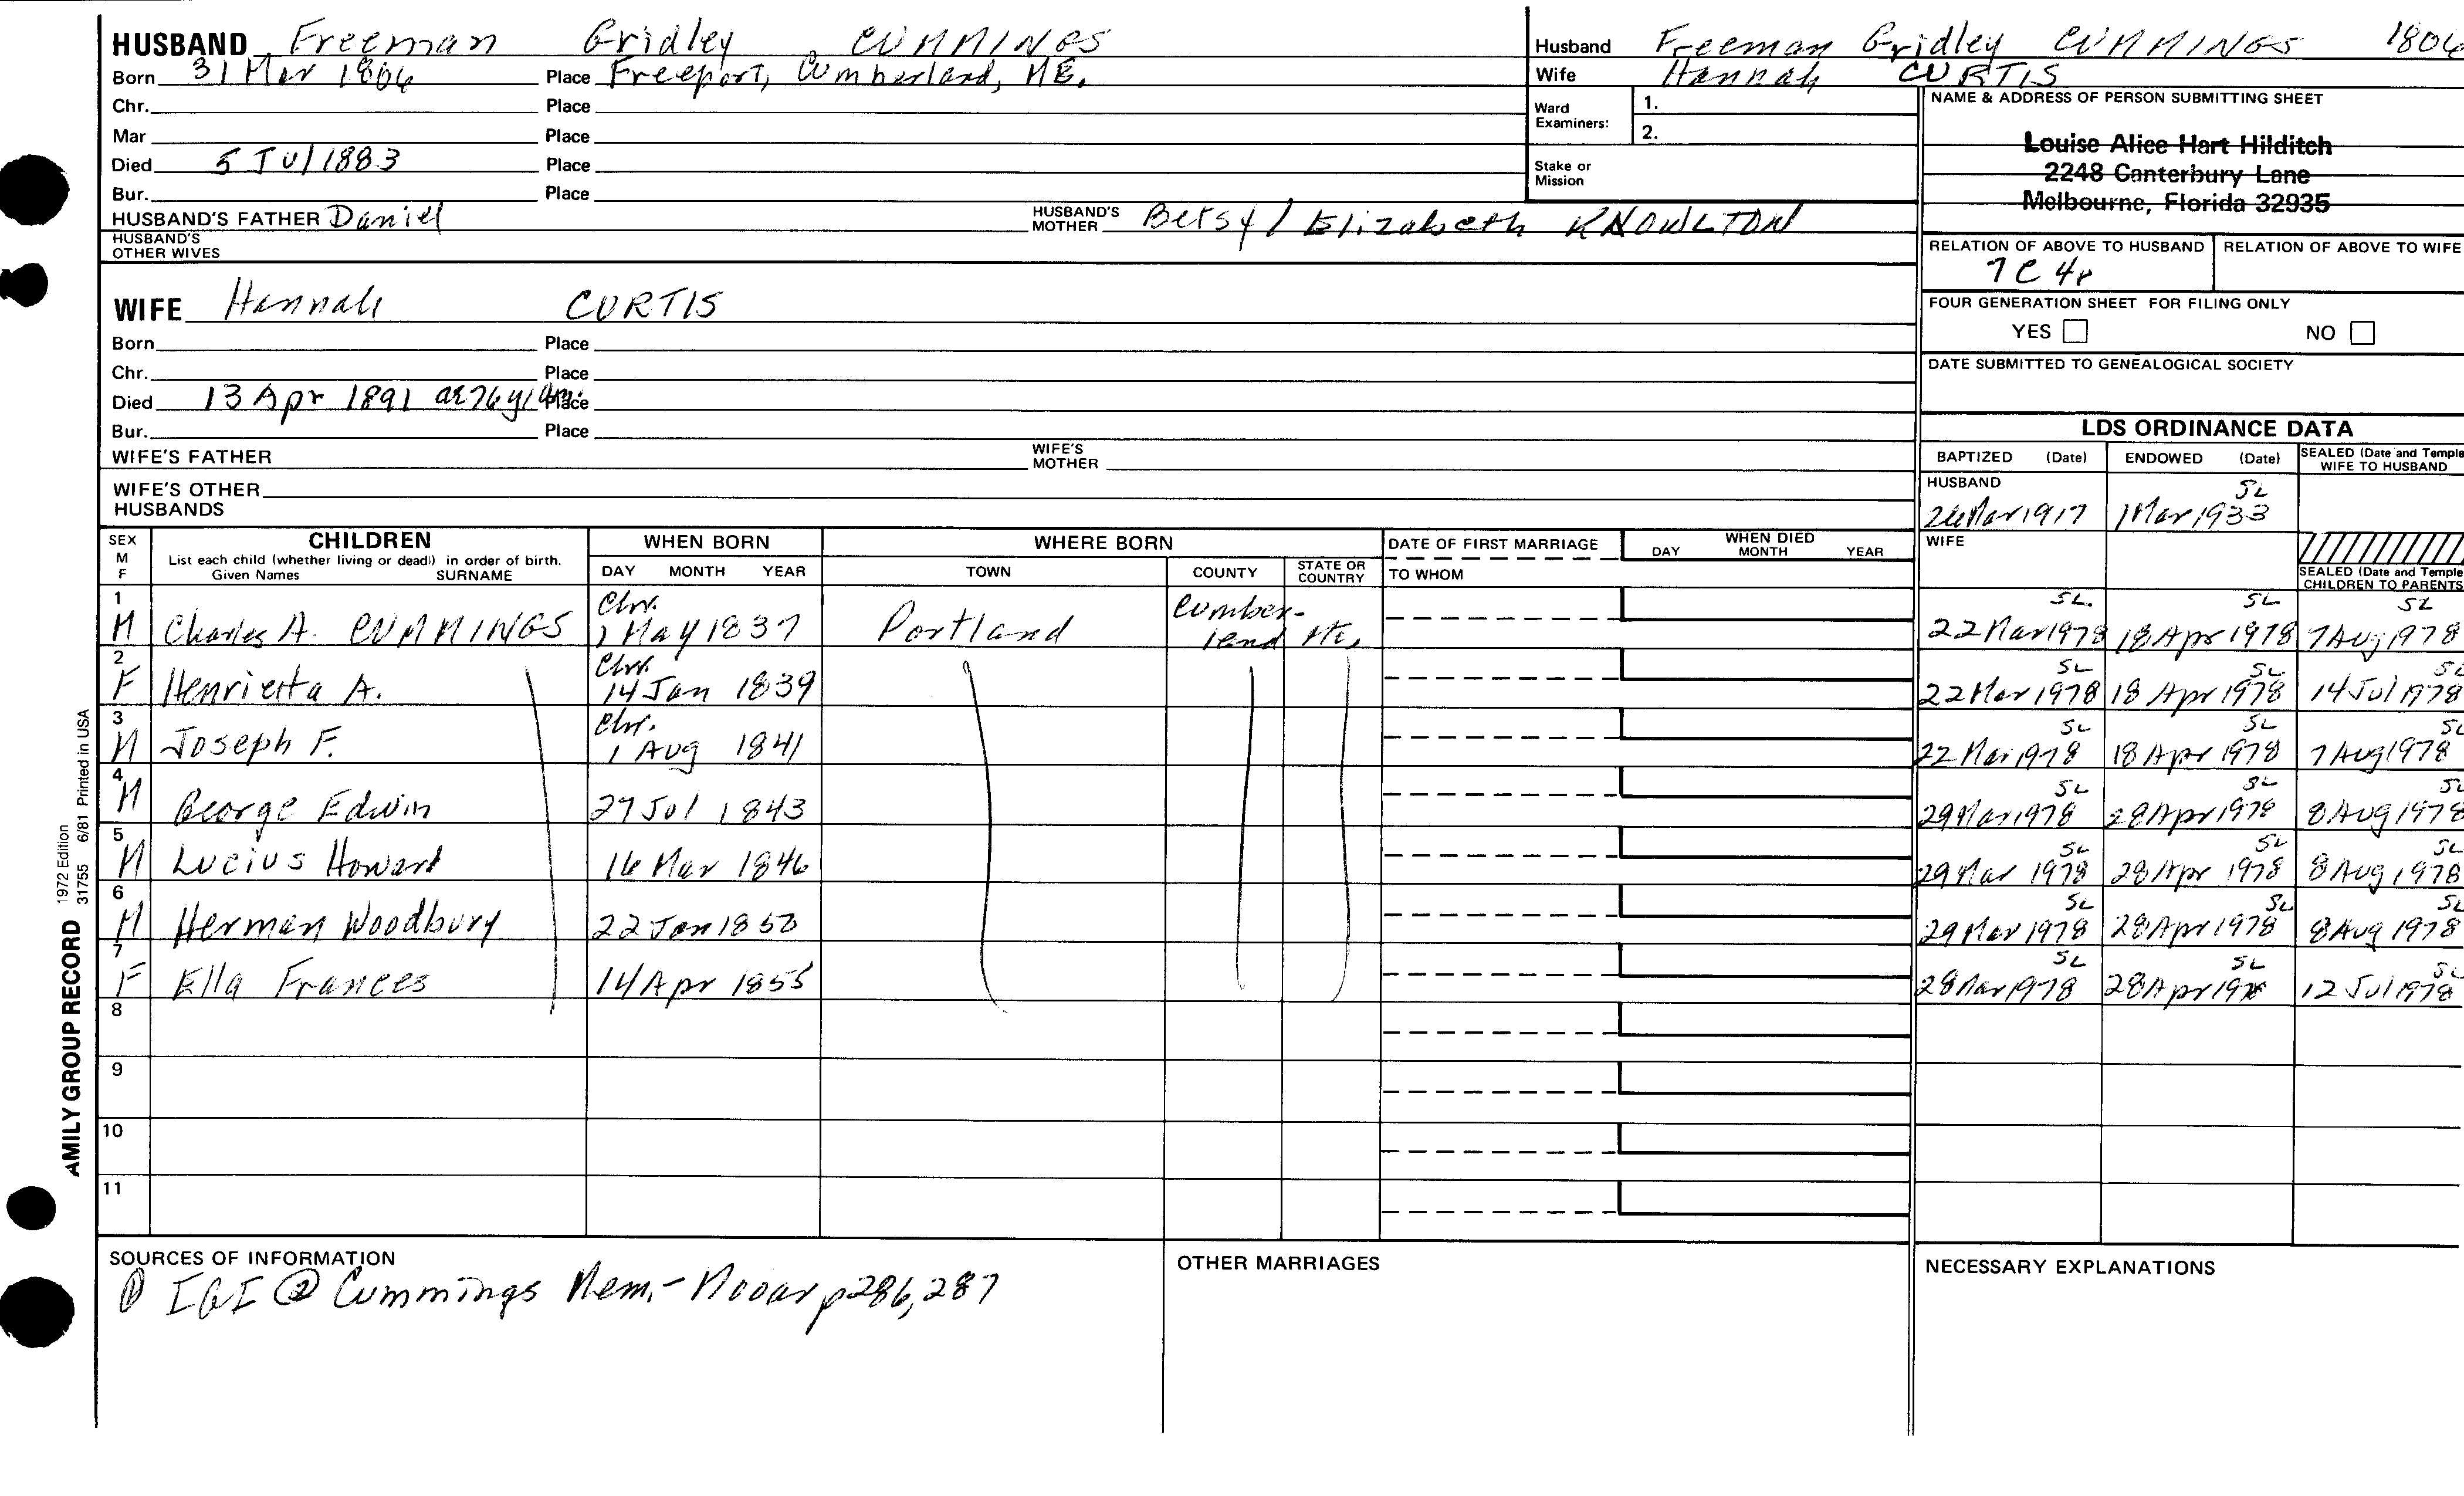 HUSBAND Freeman Gridley CUMMINGS
Born 31 Mar 1806 Place Freeport, Cumberland, ME.
Chr. Place
Mar Place
Died 5 Jul 1883 Place
Bur. Place
HUSBAND'S FATHER Daniel HUSBAND'S MOTHER Betsy / Elizabeth KNOWLTON
HUSBAND'S OTHER WIVES
WIFE Hannah CURTIS
Born Place
Chr. Place
Died 13 Apr 1891 Place
Bur. Place
WIFE'S FATHER WIFE'S MOTHER
WIFE'S OTHER HUSBANDS
Husband Freeman Gridley CUMMINGS 1806
Wife Hannah CURTIS
Ward Examiners: 1.
2.
Stake or Mission
NAME & ADDRESS OF PERSON SUBMITTING SHEET
Louise Alice Hart Hilditch
2248 Canterbury Lane
Melbourne, Florida 32935
RELATION OF ABOVE TO HUSBAND RELATION OF ABOVE TO WIFE
7C4r
FOUR GENERATION SHEET FOR FILING ONLY
YES NO
DATE SUBMITTED TO GENEALOGICAL SOCIETY
LDS ORDINANCE DATA
BAPTIZED (Date) ENDOWED (Date) SEALED (Date and Temple WIFE TO HUSBAND
HUSBAND SL
26 Mar 1917 1 Mar 1933
WIFE
SEALED (Date and Temple CHILDREN TO PARENTS
SEX M F CHILDREN WHEN BORN WHERE BORN DATE OF FIRST MARRIAGE WHEN DIED
List each child (whether living or dead) in order of birth.
Given Names SURNAME DAY MONTH YEAR TOWN COUNTY STATE OR COUNTRY TO WHOM DAY MONTH YEAR
1 Chr. Cumber- SL. SL SL
M Charles A. CUMMINGS 7 May 1837 Portland land Me, 22 Mar 1978 18 Apr 1978 7 Aug 1978
2 Chr. SL SL SL
F Henrietta A. 14 Jan 1839 22 Mar 1978 18 Apr 1978 14 Jul 1978
3 Chr. SL SL SL
M Joseph F. 1 Aug 1841 22 Mar 1978 18 Apr 1978 7 Aug 1978
4 SL SL SL
M George Edwin 27 Jul 1843 29 Mar 1978 28 Apr 1978 8 Aug 1978
5 SL SL SL
M Lucius Howard 16 Mar 1846 29 Mar 1978 28 Apr 1978 8 Aug 1978
6 SL SL SL
M Herman Woodbury 22 Jan 1850 29 Mar 1978 28 Apr 1978 8 Aug 1978
7 SL SL SL
F Ella Frances 14 Apr 1855 28 Mar 1978 28 Apr 1978 12 Jul 1978
8
9
10
11
SOURCES OF INFORMATION
① IGI ② Cummings Mem.- Mooar p286, 287
OTHER MARRIAGES
NECESSARY EXPLANATIONS
AMILY GROUP RECORD 1972 Edition
31755 6/81 Printed in USA